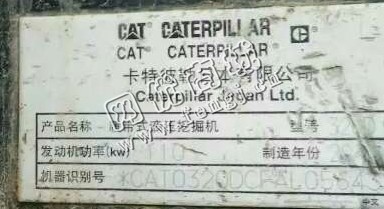 CAT CATERPILLAR
CAT® CATERPILLAR®
卡特彼勒日本有限公司
Caterpillar Japan Ltd.
产品名称- 履带式液压挖掘机 型号
发动机功率(kw) 110 制造年份
机器识别号
中文